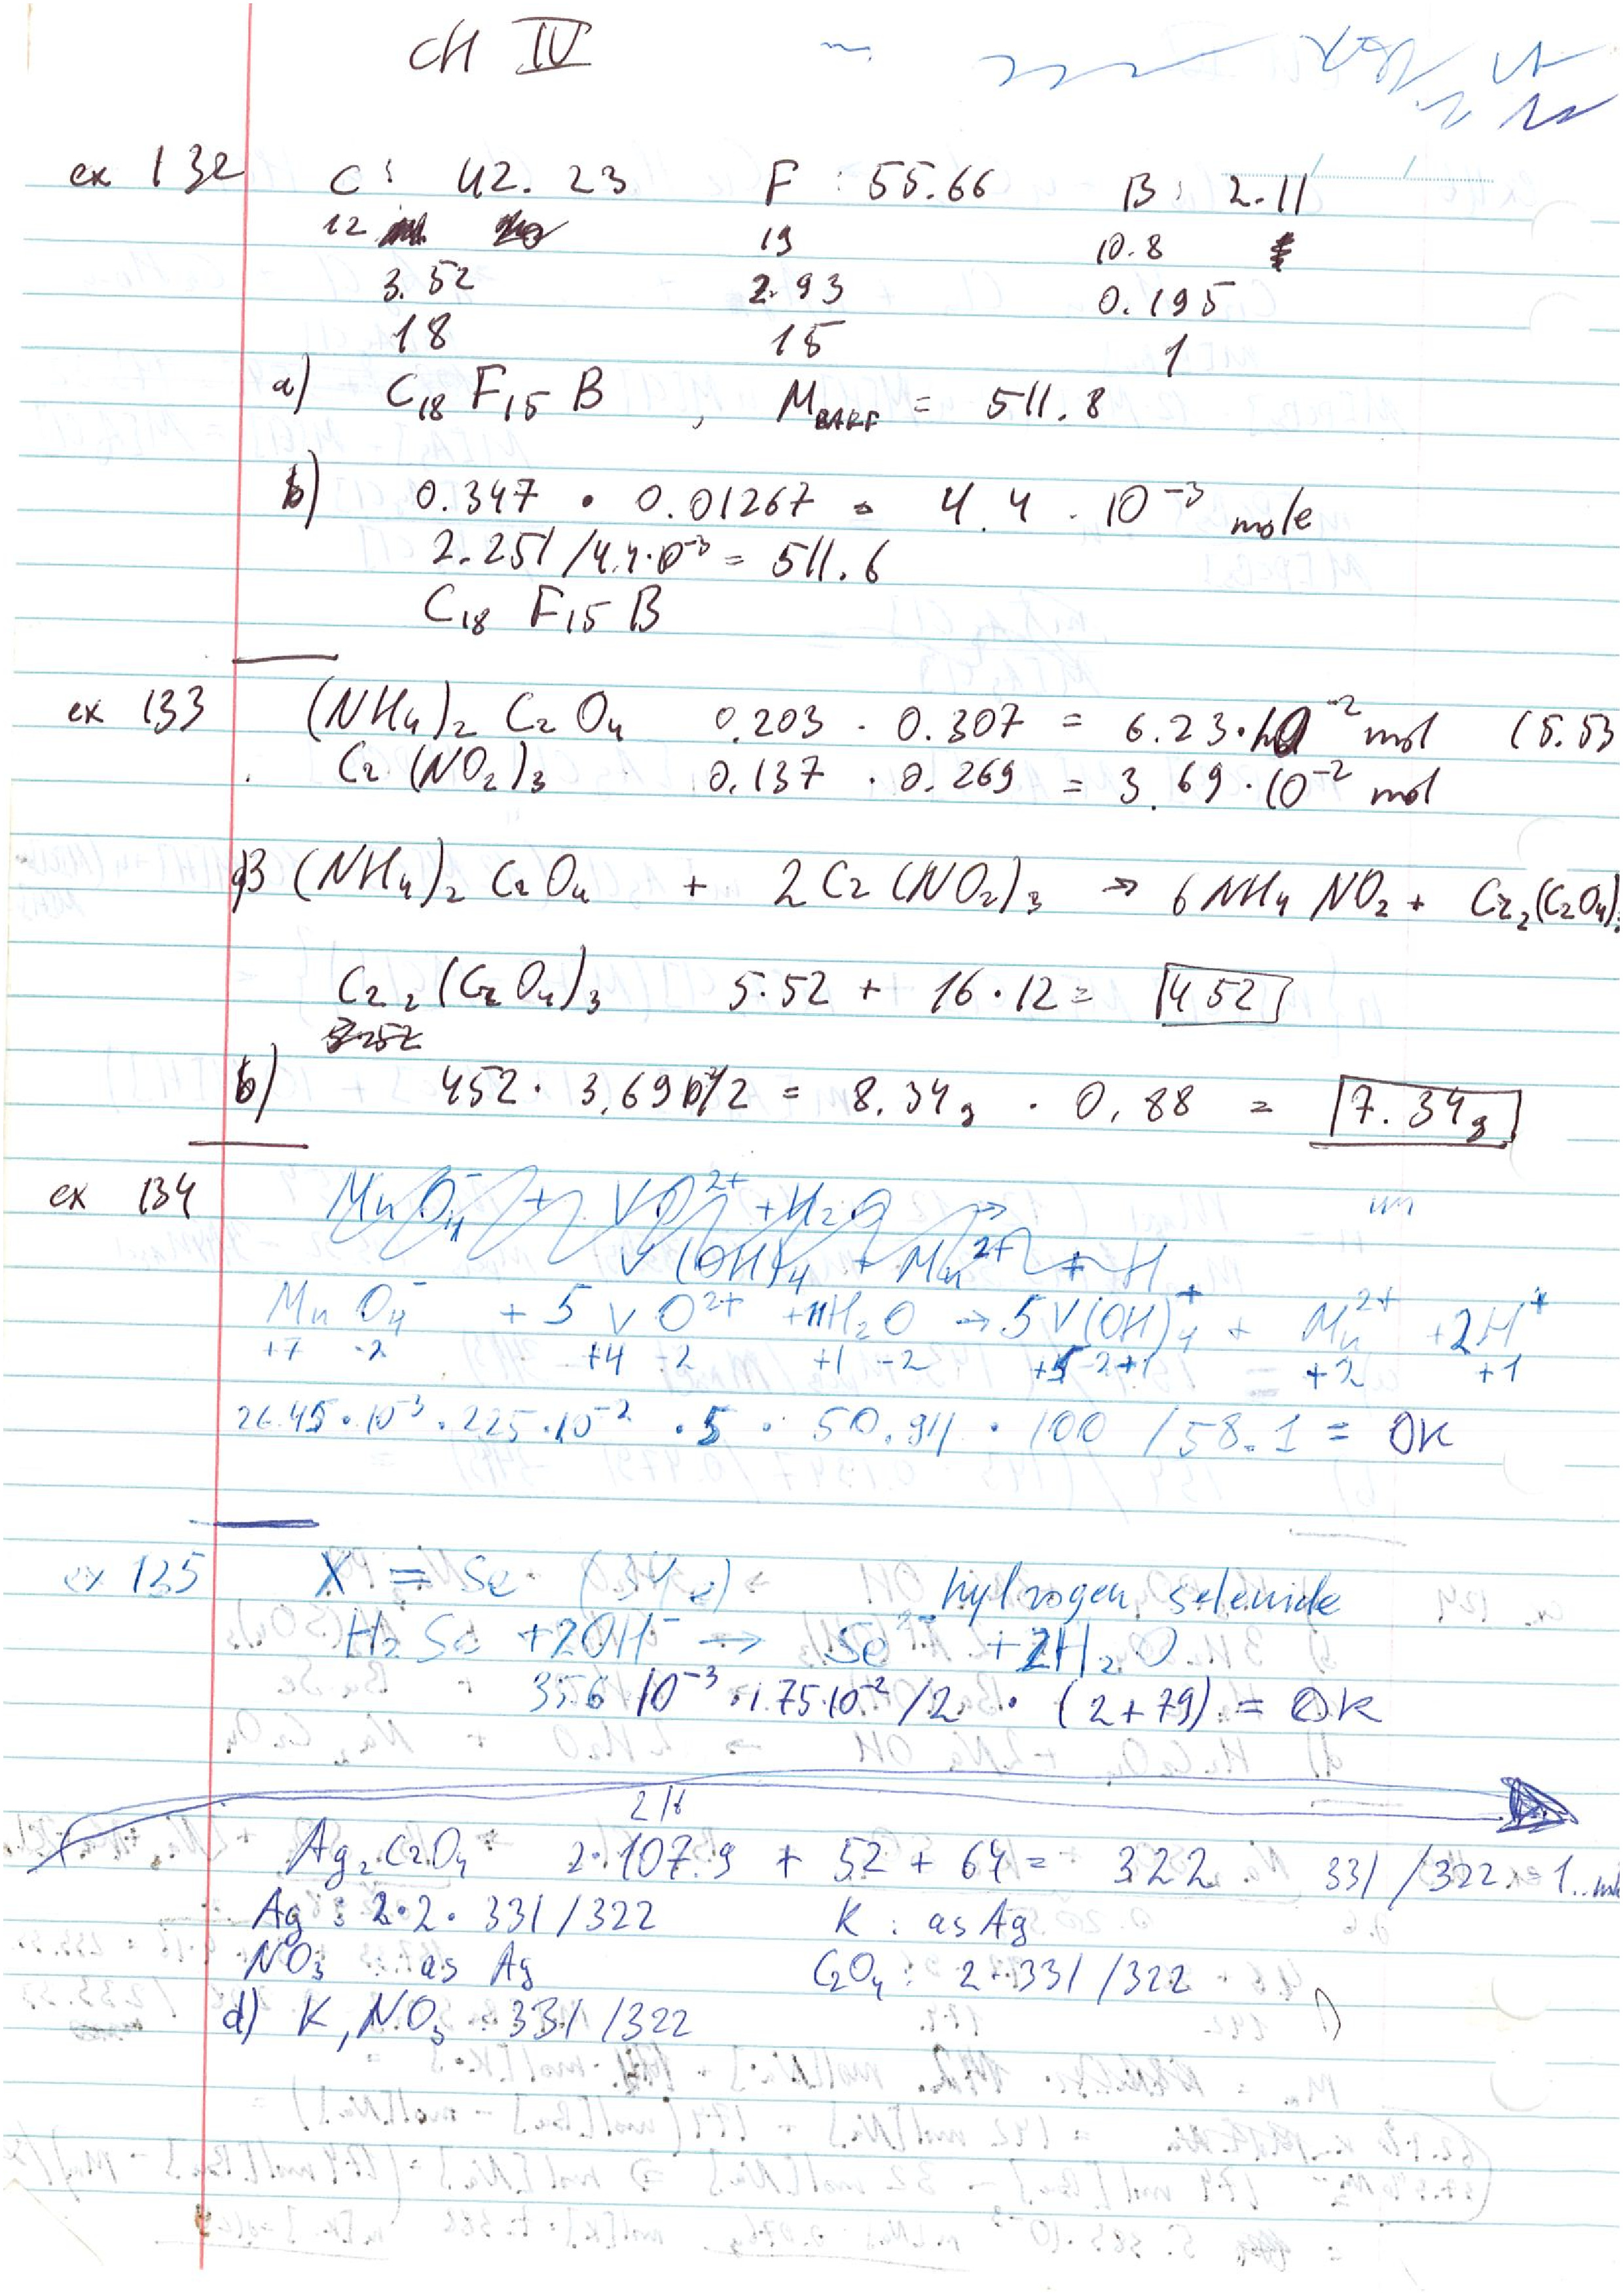 CH IV
ex 132 C: 42.23 F: 55.66 B: 2.11
12 19 10.8
3.52 2.93 0.195
18 15 1
a) C18 F15 B , MBARF = 511.8
b) 0.347 • 0.01267 = 4.4 · 10⁻³ mole
2.251/4.4·10⁻³ = 511.6
C18 F15 B
ex 133 (NH4)2 C2O4 0.203 · 0.307 = 6.23·10⁻² mol (5.53
Cr(NO2)3 0.137 · 0.269 = 3.69·10⁻² mol
3 (NH4)2 Cr O4 + 2 Cr (NO2)3 → 6 NH4 NO2 + Cr2(C2O4)
Cr2(C2O4)3 5·52 + 16·12 = 452
b) 452 · 3,69 10⁻²/2 = 8.34g · 0,88 = 7.34g
ex 134 MnO4⁻ + VO²⁺ + H2O →
V(OH)4 + Mn²⁺ + H
MnO4⁻ + 5 VO²⁺ + 11H2O → 5V(OH)4⁺ + Mn²⁺ + 2H⁺
+7 -2 +4 -2 +1 -2 +5 -2 +1 +2 +1
26.45·10⁻³ · 2.25·10⁻² · 5 · 50.941 · 100 / 58.1 = OK
ex 135 X = Se (34e) hydrogen selenide
H2Se + 2OH⁻ → Se²⁻ + 2H2O
35.6 10⁻³ · 1.75·10⁻²/2 · (2+79) = OK
216
Ag2CrO4 2·107.9 + 52 + 64 = 322 331/322 = 1..
Ag: 2·2· 331/322 K: as Ag
NO3 : as Ag CrO4: 2·331/322
d) K, NO3 : 331/322